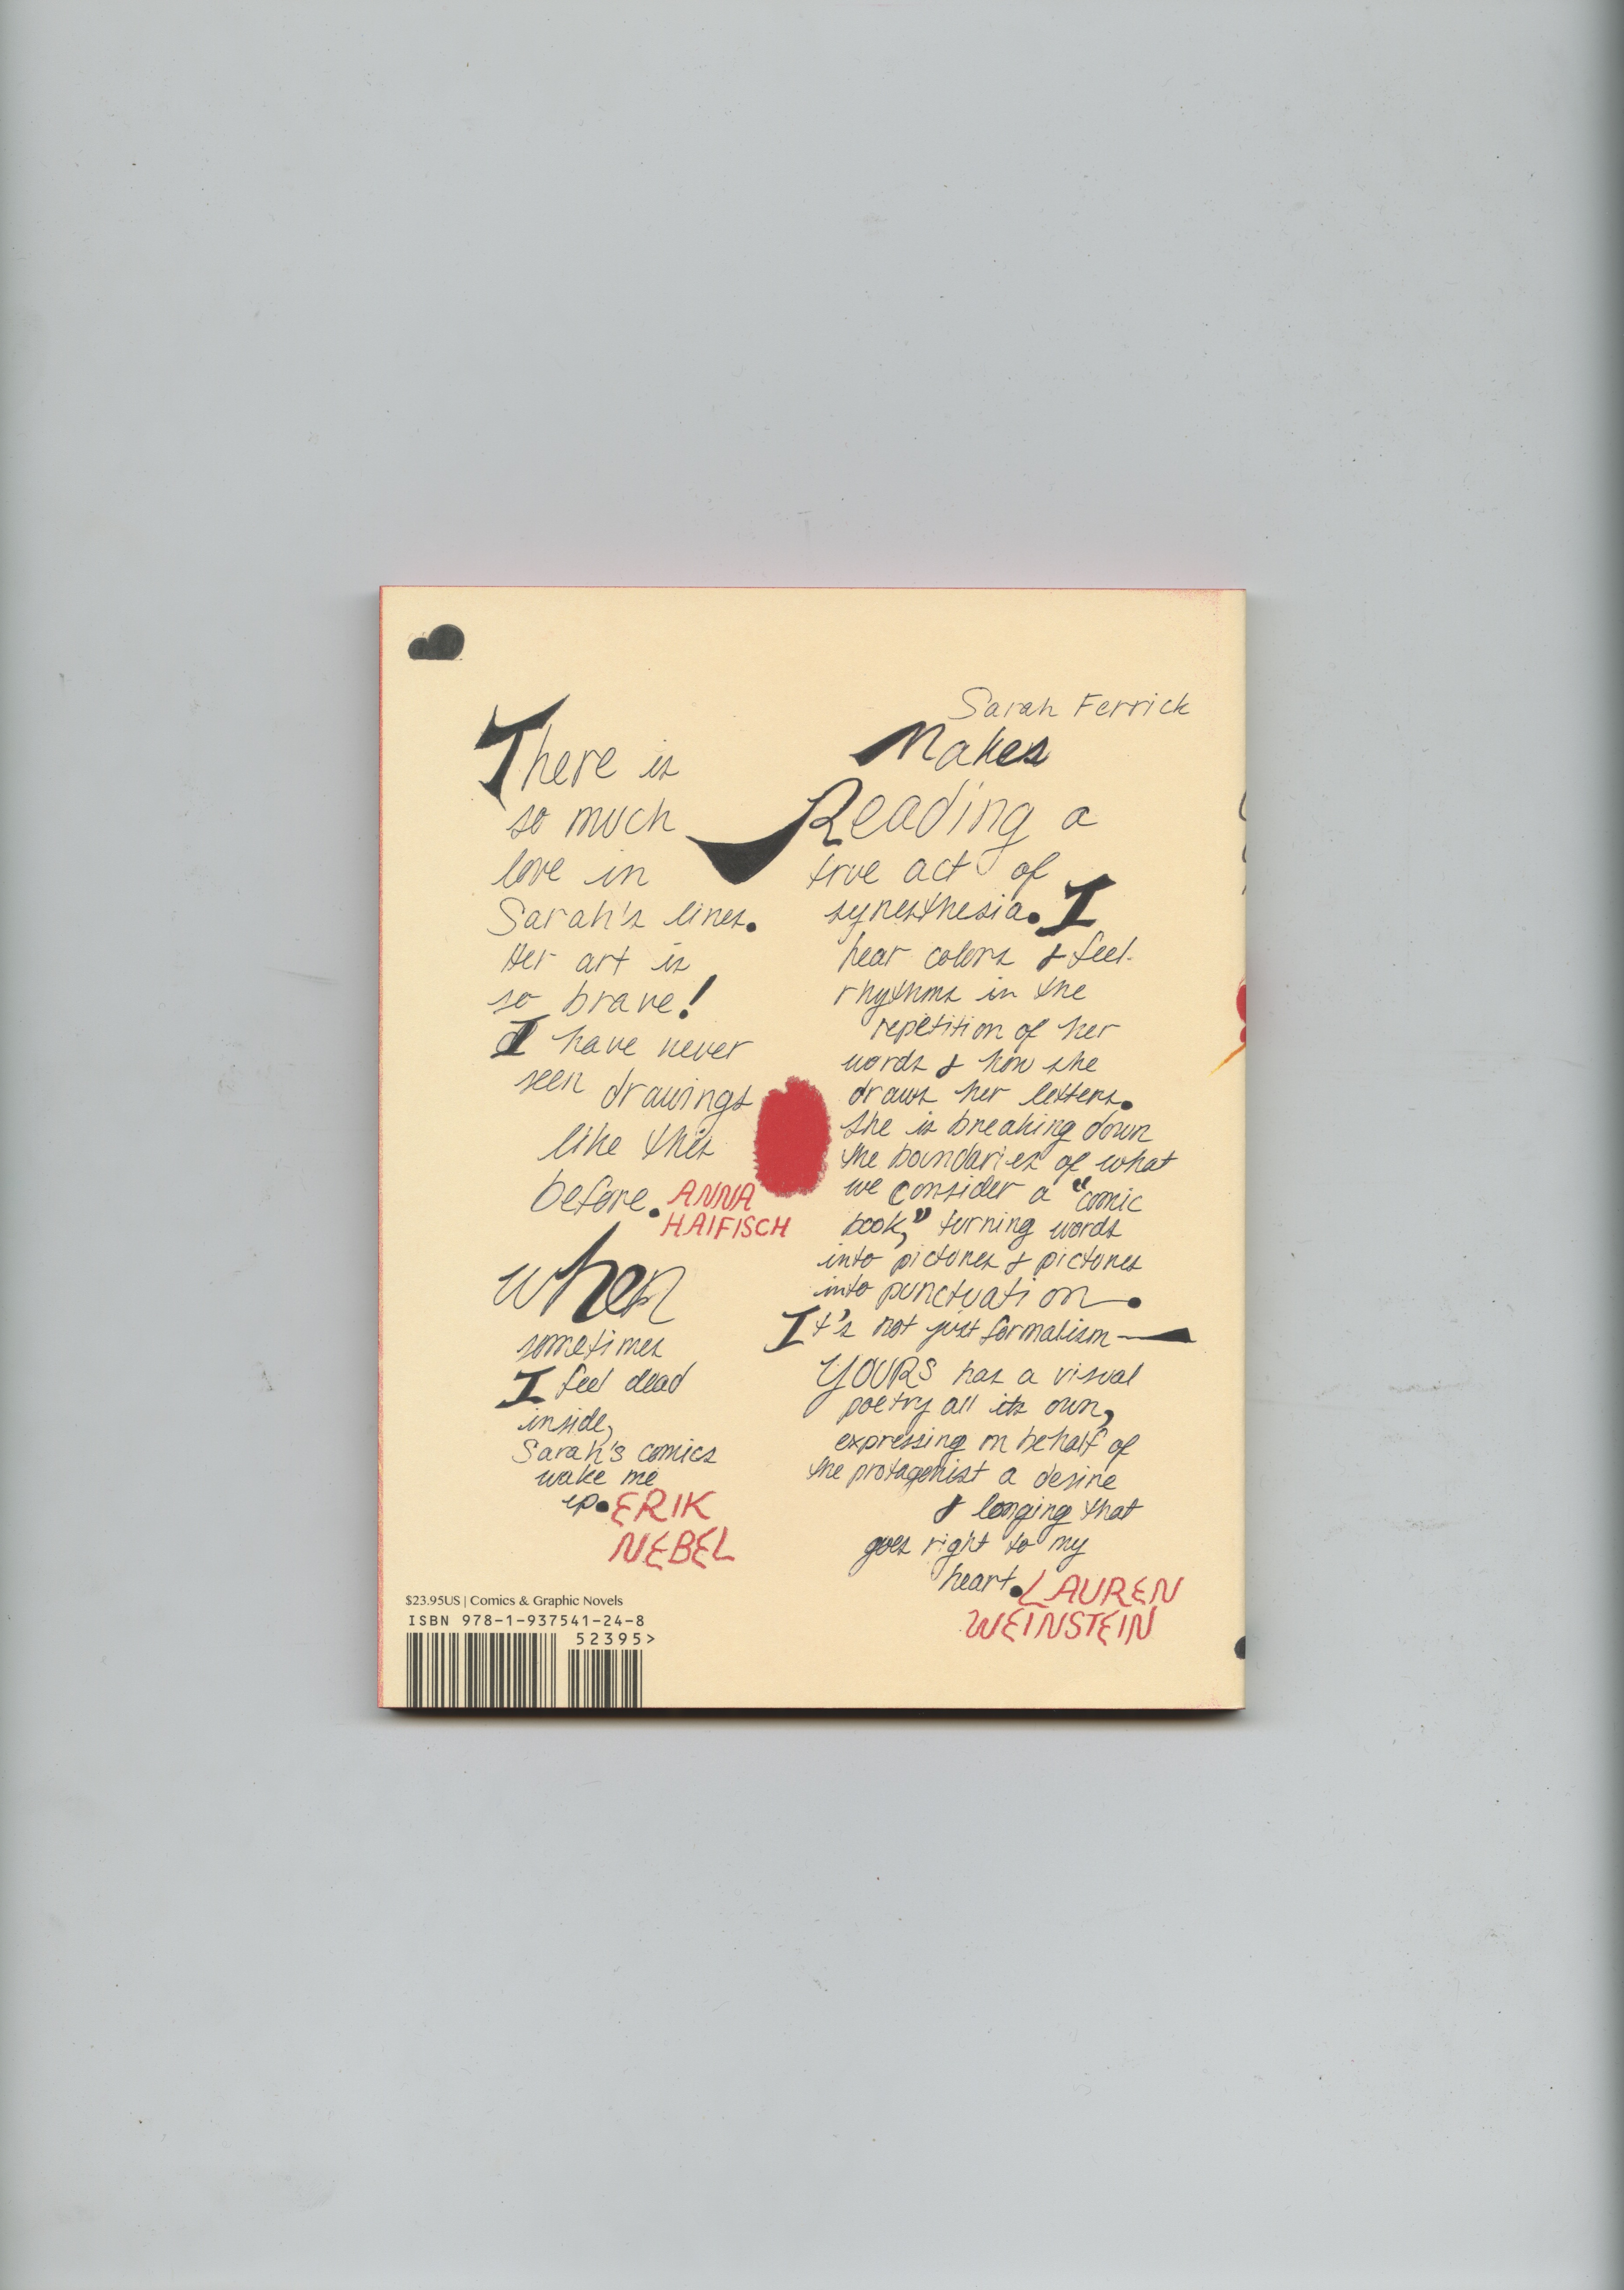 There is
so much
love in
Sarah's lines.
Her art is
so brave!
I have never
seen drawings
like this
before. ANNA
HAIFISCH
when
sometimes
I feel dead
inside,
Sarah's comics
wake me
up. ERIK
NEBEL
$23.95US | Comics & Graphic Novels
ISBN 978-1-937541-24-8
52395>
Sarah Ferrick
Makes
Reading a
true act of
synesthesia. I
hear colors & feel
rhythms in the
repetition of her
words & how she
draws her letters.
She is breaking down
the boundaries of what
we consider a "comic
book," turning words
into pictures & pictures
into punctuation.
It's not just formalism—
YOURS has a visual
poetry all its own,
expressing on behalf of
the protagonist a desire
& longing that
goes right to my
heart. LAUREN
WEINSTEIN